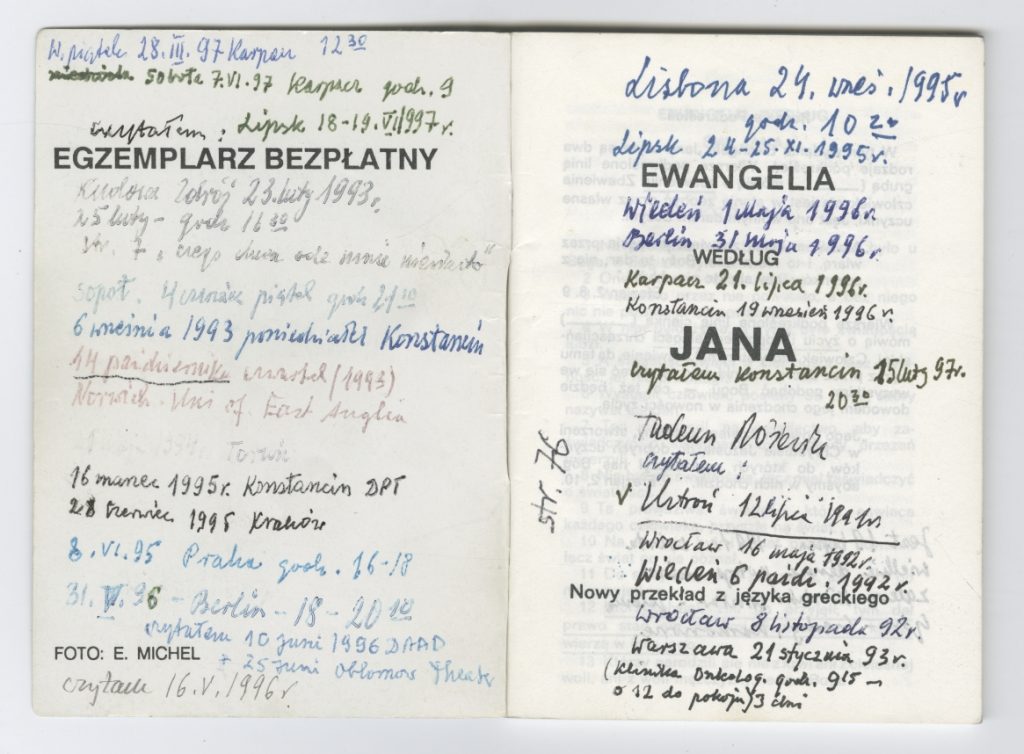 W. piątek 28.III.97 Karpacz 12 30
sobota 7.VI.97 Karpacz godz. 9
czytałem: Lipsk 18-19.VI/1997r.
EGZEMPLARZ BEZPŁATNY
Kudowa Zdrój 23.luty 1993r
25 luty - godz 16 30
str. 7 „czego chcesz ode mnie niewiasto"
Sopot. 4 czerwca piątek godz 21 10
6 września 1993 poniedziałek Konstancin
14 października czwartek (1993)
Norwich. Uni of East Anglia
maja 1994 Toruń
16 marzec 1995r. Konstancin
28 czerwiec 1995 Kraków
8.VI.95 Praha godz. 16-18
31.V.96 - Berlin - 18 - 20 10
czytałem 10 Juni 1996 DAAD
+ 25 Juni Oblomow Theater
FOTO: E. MICHEL
czytałem 16.V.1996r
Lisbona 24. wrześ. 1995r
godz. 10
Lipsk 24-25.XI.1995r.
EWANGELIA
Wiedeń 1 Maja 1996r.
Berlin 31 Maja 1996r.
WEDŁUG
Karpacz 21. lipca 1996r.
Konstancin 19 wrzesień 1996r.
JANA
czytałem Konstancin 25 luty 97r.
20 30
Tadeusz Różewicz
czytałem:
str. 76
√ Ustroń 12 lipca
Wrocław 16 maja 1992r.
Wiedeń 6 paźdź. 1992r.
Nowy przekład z języka greckiego
Wrocław 8 listopada 92r.
Warszawa 21 stycznia 93r.
(Klinika Onkolog. godz. 9 15 -
o 12 do pokoju) 3 dni